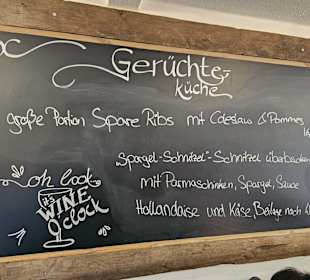 Gerüchte
küche
große Portion Spare Ribs mit Coleslaw & Pommes
"Spargel-Schnitzel"-Schnitzel überbacken
mit Parmaschinken, Spargel, Sauce
Hollandaise und Käse, Beilage nach
oh look
it's
WINE
o'clock